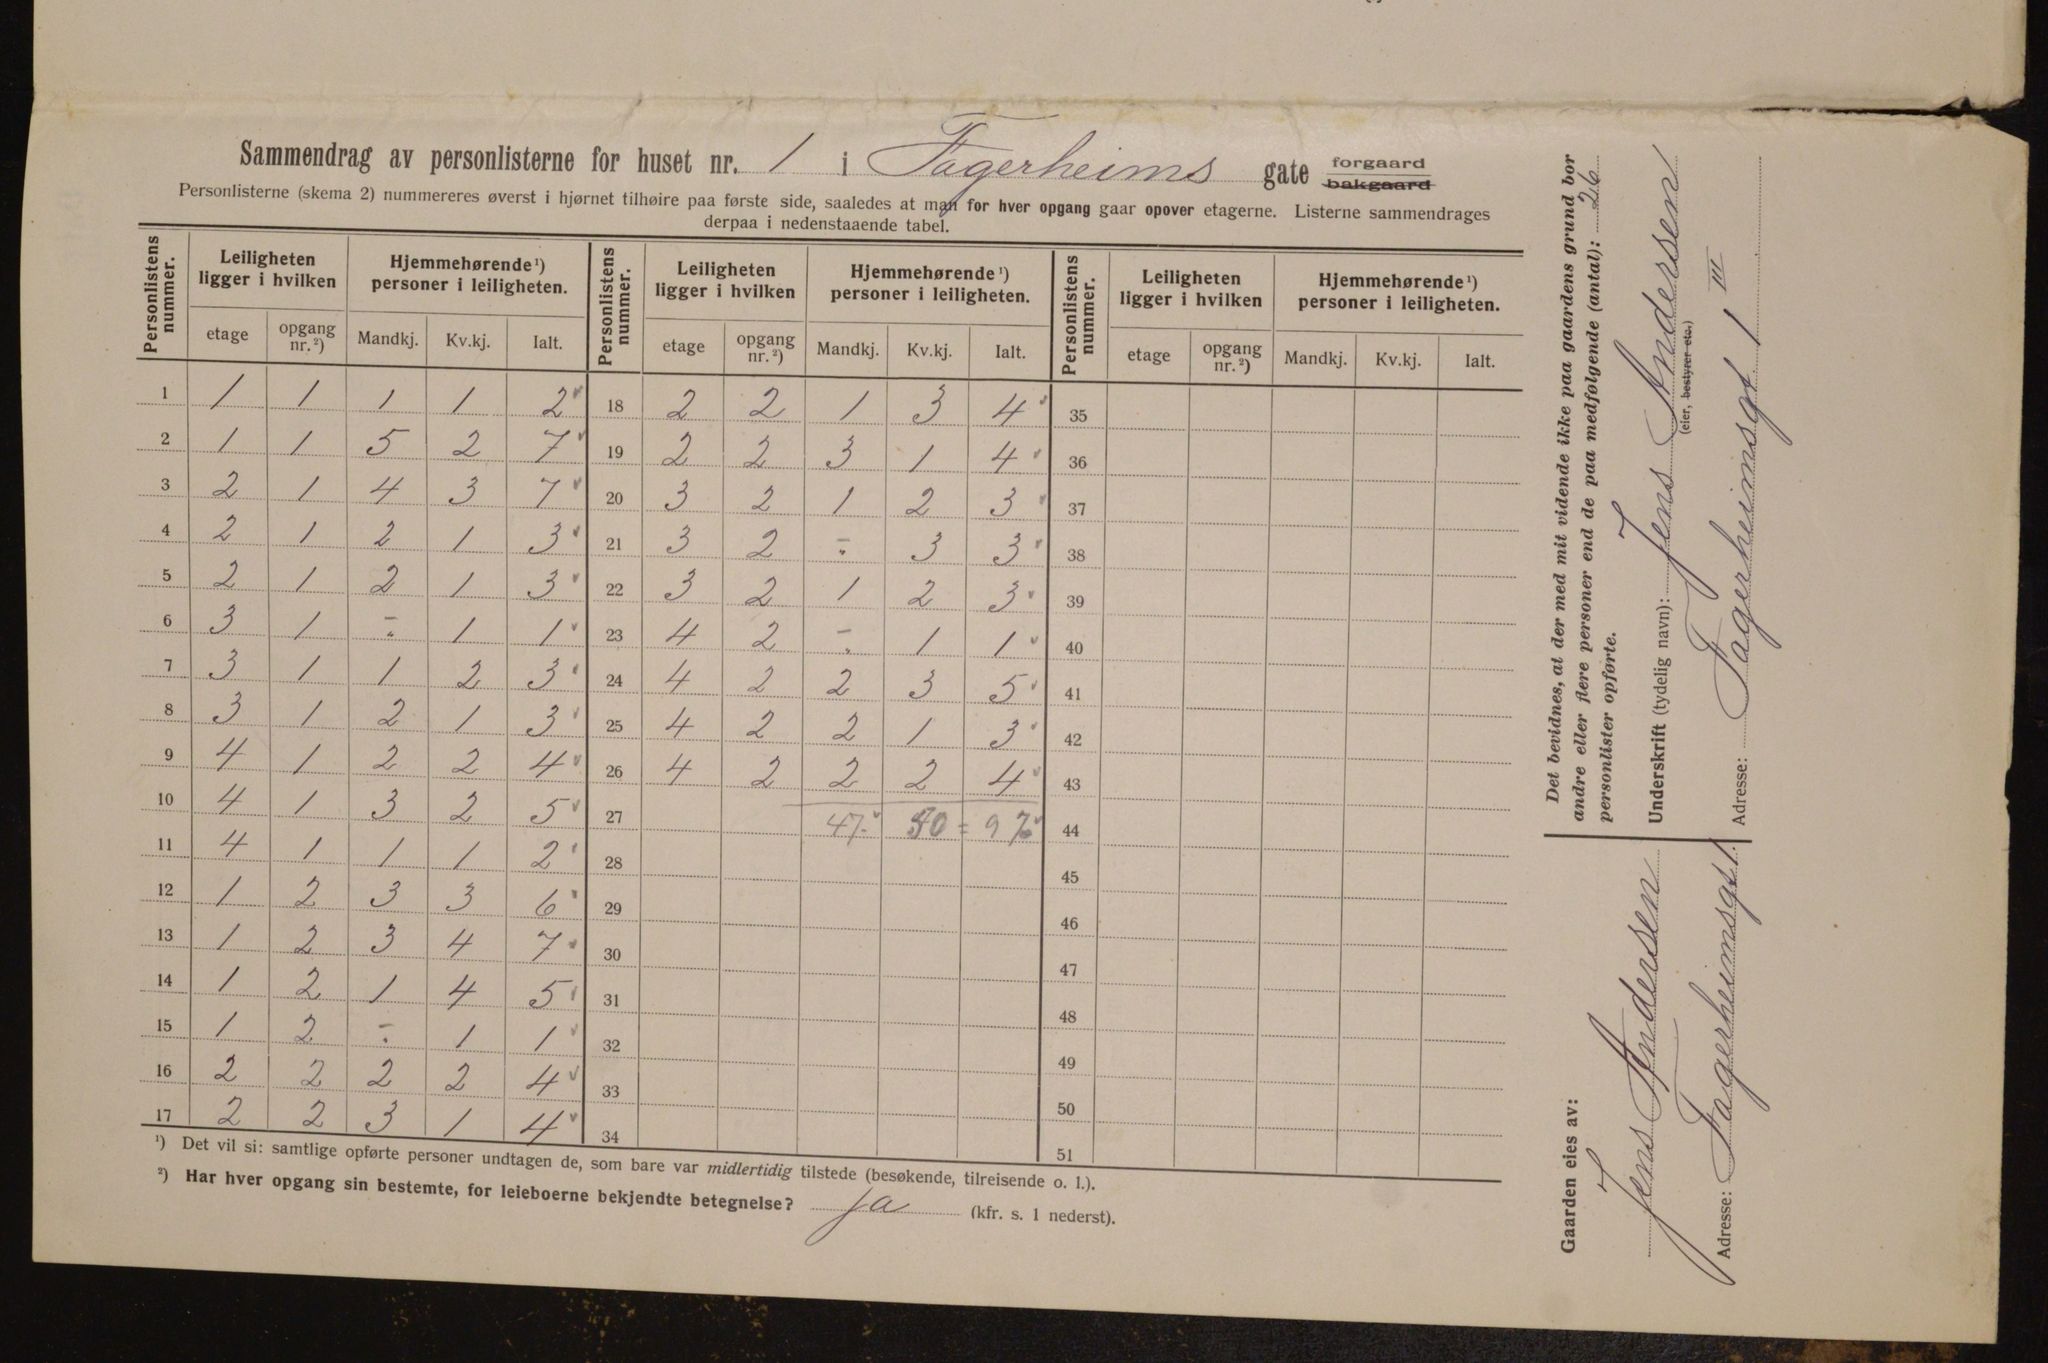 Sammendrag av personlisterne for huset nr. 1 i Fagerheims gate forgaard bakgaard
Personlisterne (skema 2) nummereres øverst i hjørnet tilhøire paa første side, saaledes at man for hver opgang gaar opover etagerne. Listerne sammendrages
derpaa i nedenstaaende tabel.
Personlistens nummer. Leiligheten ligger i hvilken Hjemmehørende¹) personer i leiligheten. Personlistens nummer. Leiligheten ligger i hvilken Hjemmehørende¹) personer i leiligheten. Personlistens nummer. Leiligheten ligger i hvilken Hjemmehørende¹) personer i leiligheten.
etage opgang nr.²) Mandkj. Kv.kj. Ialt. etage opgang nr.²) Mandkj. Kv.kj. Ialt. etage opgang nr.²) Mandkj. Kv.kj. Ialt.
1 1 1 1 1 2 18 2 2 1 3 4 35
2 1 1 5 2 7 19 2 2 3 1 4 36
3 2 1 4 3 7 20 3 2 1 2 3 37
4 2 1 2 1 3 21 3 2 - 3 3 38
5 2 1 2 1 3 22 3 2 1 2 3 39
6 3 1 - 1 1 23 4 2 - 1 1 40
7 3 1 1 2 3 24 4 2 2 3 5 41
8 3 1 2 1 3 25 4 2 2 1 3 42
9 4 1 2 2 4 26 4 2 2 2 4 43
10 4 1 3 2 5 27 47 50 = 97 44
11 4 1 1 1 2 28 45
12 1 2 3 3 6 29 46
13 1 2 3 4 7 30 47
14 1 2 1 4 5 31 48
15 1 2 - 1 1 32 49
16 2 2 2 2 4 33 50
17 2 2 3 1 4 34 51
¹) Det vil si: samtlige opførte personer undtagen de, som bare var midlertidig tilstede (besøkende, tilreisende o. l.).
²) Har hver opgang sin bestemte, for leieboerne bekjendte betegnelse? ja (kfr. s. 1 nederst).
Det bevidnes, at der med mit vidende ikke paa gaardens grund bor
andre eller flere personer end de paa medfølgende (antal): 26
personlister opførte.
Underskrift (tydelig navn): Jens Andersen
(eier, bestyrer etc.)
Adresse: Fagerheimsgt 1 III
Gaarden eies av:
Jens Andersen
Adresse: Fagerheimsgt 1.